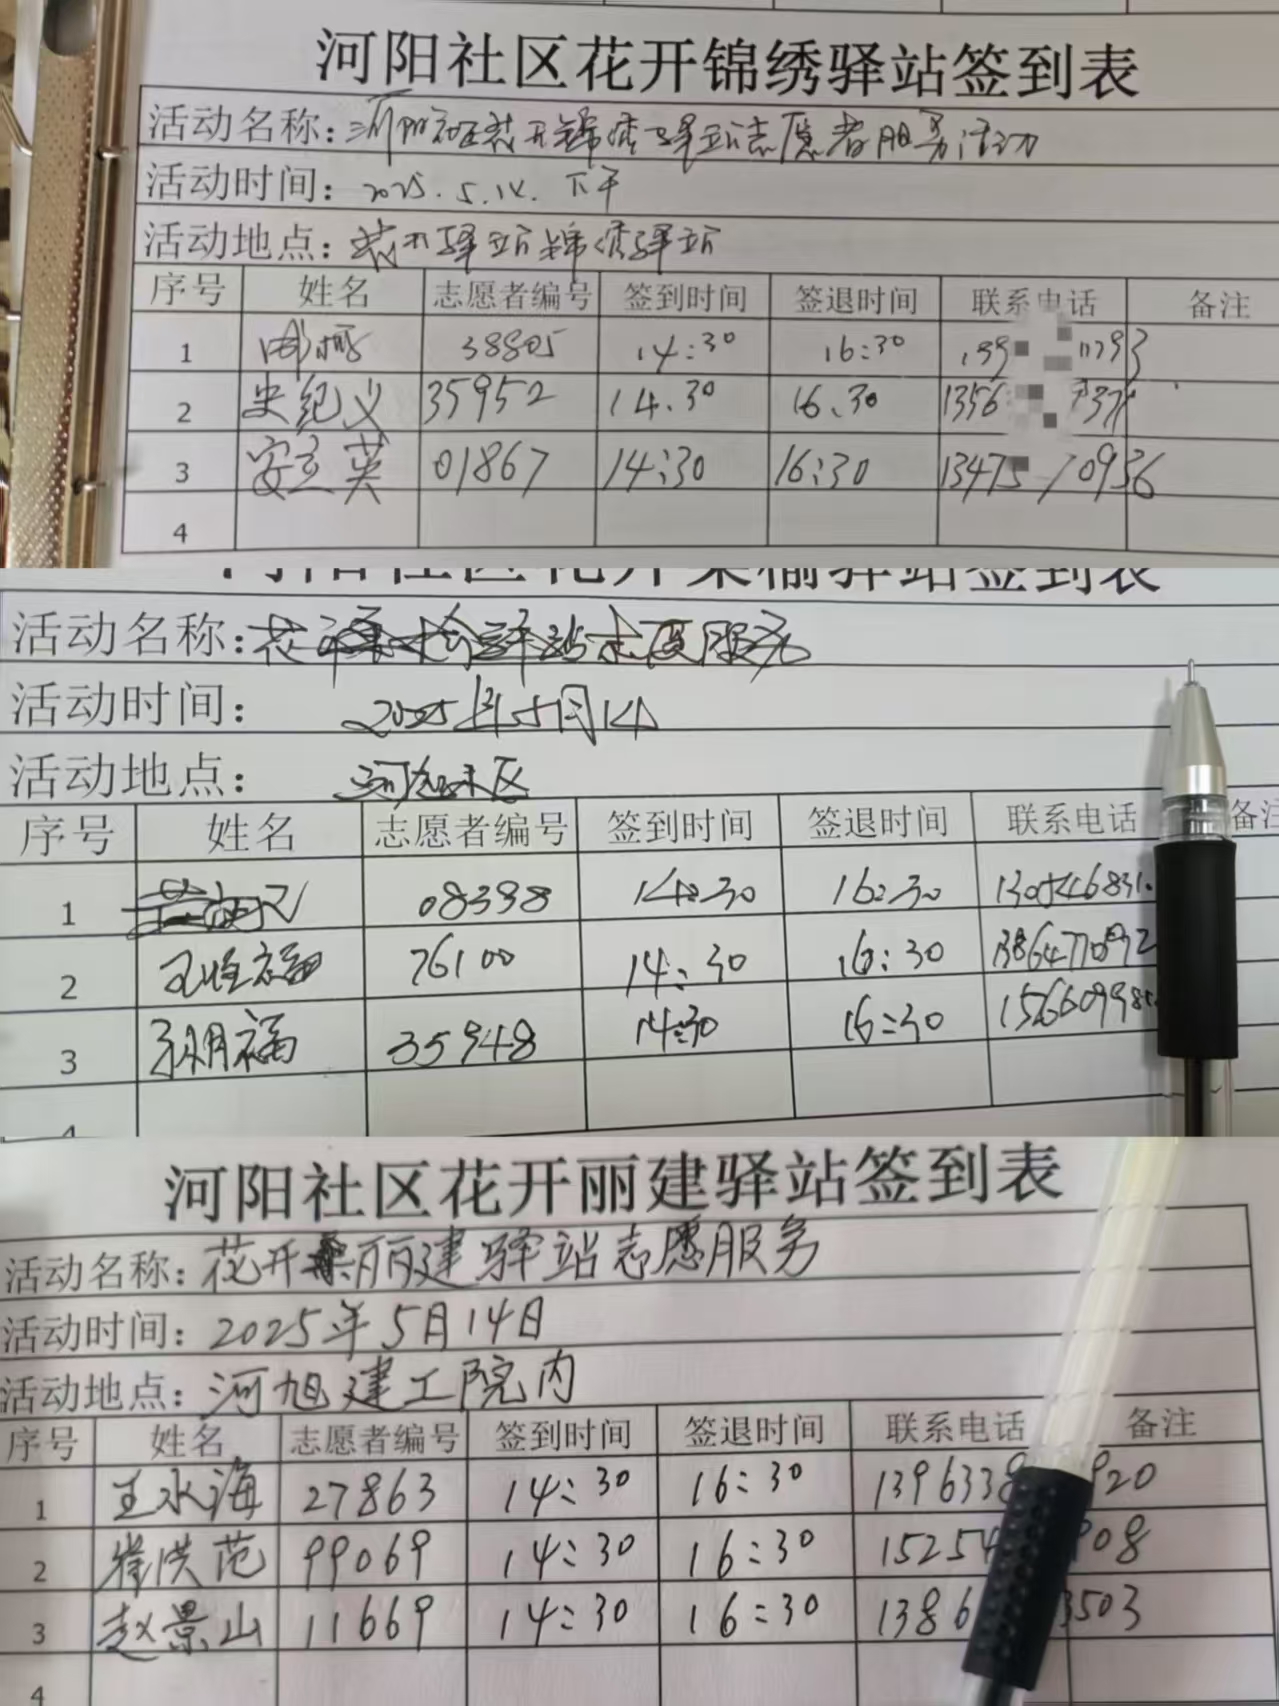 河阳社区花开锦绣驿站签到表
活动名称：河阳社区花开锦绣驿站志愿者服务活动
活动时间：2025.5.14.下午
活动地点：花开驿站锦绣驿站
序号 姓名 志愿者编号 签到时间 签退时间 联系电话 备注
1 38805 14:30 16:30 139 11793
2 史纪义 35952 14.30 16.30 1356 737
3 安立英 01867 14:30 16:30 13475 70936
4
河阳社区花开桑榆驿站签到表
活动名称：花开桑榆驿站志愿服务
活动时间：2025年5月14
活动地点：河旭社区
序号 姓名 志愿者编号 签到时间 签退时间 联系电话 备注
1 08398 14:30 16:30 130546831
2 76100 14:30 16:30 1386477
3 福 35948 14:30 16:30 15660998
4
河阳社区花开丽建驿站签到表
活动名称：花开丽建驿站志愿服务
活动时间：2025年5月14日
活动地点：河旭建工院内
序号 姓名 志愿者编号 签到时间 签退时间 联系电话 备注
1 王永海 27863 14:30 16:30 139633 920
2 崔洪范 99069 14:30 16:30 15254 908
3 赵景山 11669 14:30 16:30 1386 3503
4